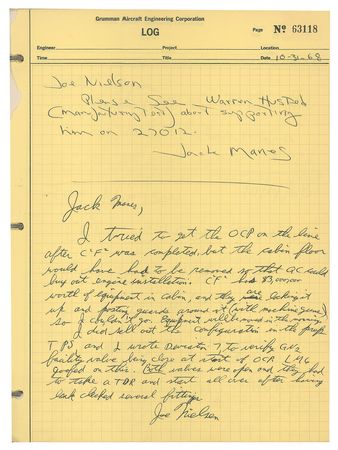 Grumman Aircraft Engineering Corporation
LOG
Page No 63118
Engineer Project Location
Time Title Date 10-31-68
Joe Nielson
Please See Warren
(manufacturing) about supporting
him on 27012.
Jack Manos
Jack Manos,
I tried to get the OCP on the line
after C "F" was completed, but the cabin floor
would have had to be removed so that QC could
buy out engine installation. "CF" had $3,000,000
worth of equipment in cabin, and they are locking it
up and posting guards around it (with machine guns)
so I couldn't go. Equipment will remove in the morning.
I did sell out the configuration in the prep
TPS and I wrote Deviation 7 to verify
facility valve being close at start of OCP. LM6
goofed on this. Both valves were open and they had
to take a TDR and start all over after having
leak checked several fittings
Joe Nielsen